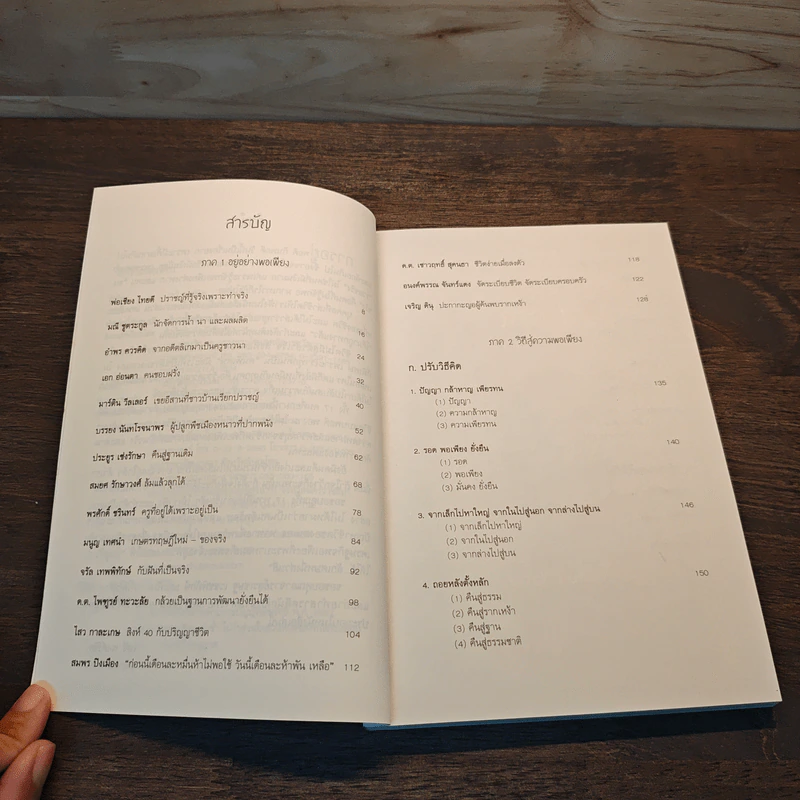 สารบัญ
ภาค 1 อยู่อย่างพอเพียง
พ่อเชียง ไทยดี ปราชญ์ที่รู้จริงเพราะทำจริง 6
มณี ชูตระกูล นักจัดการน้ำ นา และผลผลิต 16
อำพร ควรคิด จากอดีตลิเกมาเป็นครูชาวนา 24
เอก อ่อนตา คนชอบฝรั่ง 32
มาร์ติน วีลเลอร์ เขยอีสานที่ชาวบ้านเรียกปราชญ์ 40
บรรยง นันทโรจนาพร ผู้ปลูกพืชเมืองหนาวที่ปากพนัง 52
ประยูร เซ่งรักษา คืนสู่ฐานเดิม 62
สมยศ รักษาวงศ์ ล้มแล้วลุกได้ 68
พรศักดิ์ ชรินทร์ ครูที่อยู่ได้เพราะอยู่เป็น 78
มนูญ เทศนำ เกษตรทฤษฎีใหม่ - ของจริง 84
จรัล เทพพิทักษ์ กับฝันที่เป็นจริง 92
ด.ต. ไพฑูรย์ ทะวะลัย กล้วยเป็นฐานการพัฒนายั่งยืนได้ 98
ไสว กาละเกษ สิงห์ 40 กับปริญญาชีวิต 104
สมพร ปิงเมือง "ก่อนนี้เดือนละหมื่นห้าไม่พอใช้ วันนี้เดือนละห้าพัน เหลือ" 112
ด.ต. เชาวฤทธิ์ สุคนธา ชีวิตง่ายเมื่อลงตัว 118
อนงค์พรรณ จันทร์แดง จัดระเบียบชีวิต จัดระเบียบครอบครัว 122
เจริญ ดินุ ปะกากะญอผู้ค้นพบรากเหง้า 128
ภาค 2 วิถีสู่ความพอเพียง
ก. ปรับวิธีคิด
1. ปัญญา กล้าหาญ เพียรทน 135
(1) ปัญญา
(2) ความกล้าหาญ
(3) ความเพียรทน
2. รอด พอเพียง ยั่งยืน 140
(1) รอด
(2) พอเพียง
(3) มั่นคง ยั่งยืน
3. จากเล็กไปหาใหญ่ จากในไปสู่นอก จากล่างไปสู่บน 146
(1) จากเล็กไปหาใหญ่
(2) จากในไปสู่นอก
(3) จากล่างไปสู่บน
4. ถอยหลังตั้งหลัก 150
(1) คืนสู่ธรรม
(2) คืนสู่รากเหง้า
(3) คืนสู่ฐาน
(4) คืนสู่ธรรมชาติ